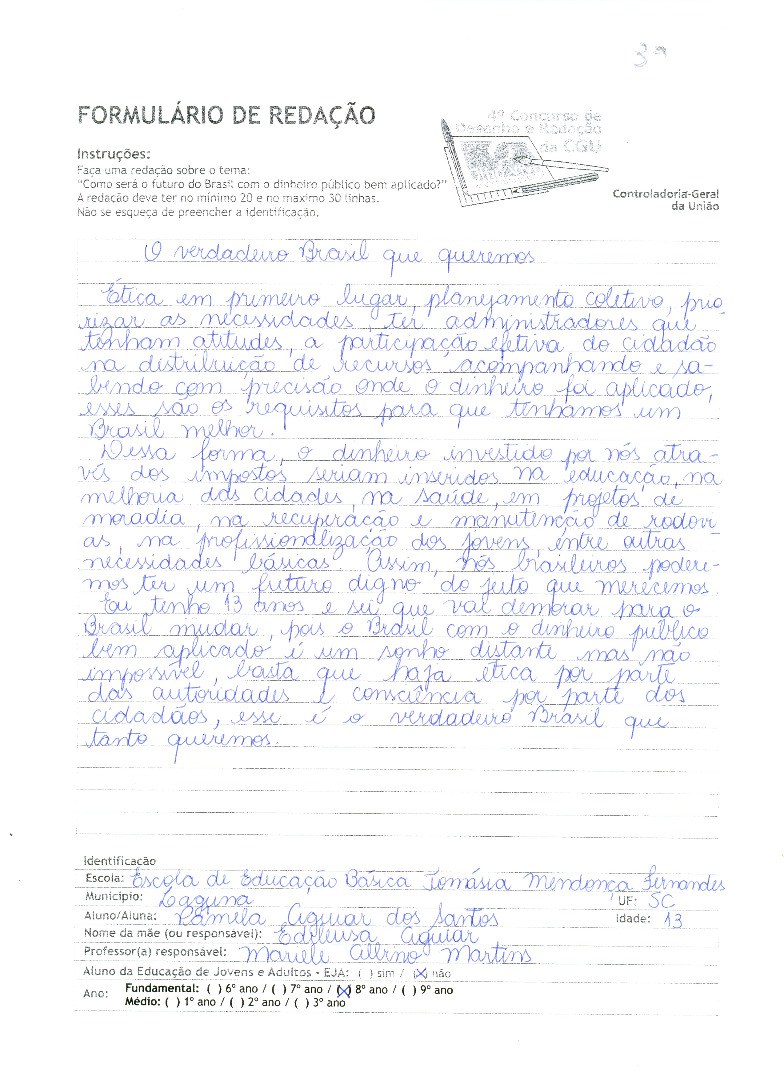 3ª
FORMULÁRIO DE REDAÇÃO
4º Concurso de
Desenho e Redação
da CGU
Instruções:
Faça uma redação sobre o tema:
"Como será o futuro do Brasil com o dinheiro público bem aplicado?"
A redação deve ter no mínimo 20 e no maximo 30 linhas.
Não se esqueça de preencher a identificação.
Controladoria-Geral
da União
O verdadeiro Brasil que queremos
Ética em primeiro lugar, planejamento coletivo, prio
rizar as necessidades, ter administradores que
tenham atitudes, a participação efetiva do cidadão
na distribuição de recursos acompanhando e sa-
bendo com precisão onde o dinheiro foi aplicado,
esses são os requisitos para que tenhamos um
Brasil melhor.
Dessa forma, o dinheiro investido por nós atra-
vés dos impostos seriam inseridos na educação, na
melhoria das cidades, na saúde, em projetos de
moradia, na recuperação e manutenção de rodovi
as, na profissionalização dos jovens, entre outras
necessidades básicas. Assim, nós brasileiros podere-
mos ter um futuro digno do jeito que merecemos.
Eu tenho 13 anos e sei que vai demorar para o
Brasil mudar, pois o Brasil com o dinheiro público
bem aplicado é um sonho distante mas não
impossível, basta que haja ética por parte
das autoridades e consciência por parte dos
cidadãos, esse é o verdadeiro Brasil que
tanto queremos.
Identificação
Escola: Escola de Educação Básica Tomásia Mendonça Fernandes
Município: Laguna UF: SC
Aluno/Aluna: Pâmela Aguiar dos Santos Idade: 13
Nome da mãe (ou responsável): Edileusa Aguiar
Professor(a) responsável: Mariele Martins
Aluno da Educação de Jovens e Adultos - EJA: ( ) sim / (X) não
Ano: Fundamental: ( ) 6º ano / ( ) 7º ano / (X) 8º ano / ( ) 9º ano
Médio: ( ) 1º ano / ( ) 2º ano / ( ) 3º ano